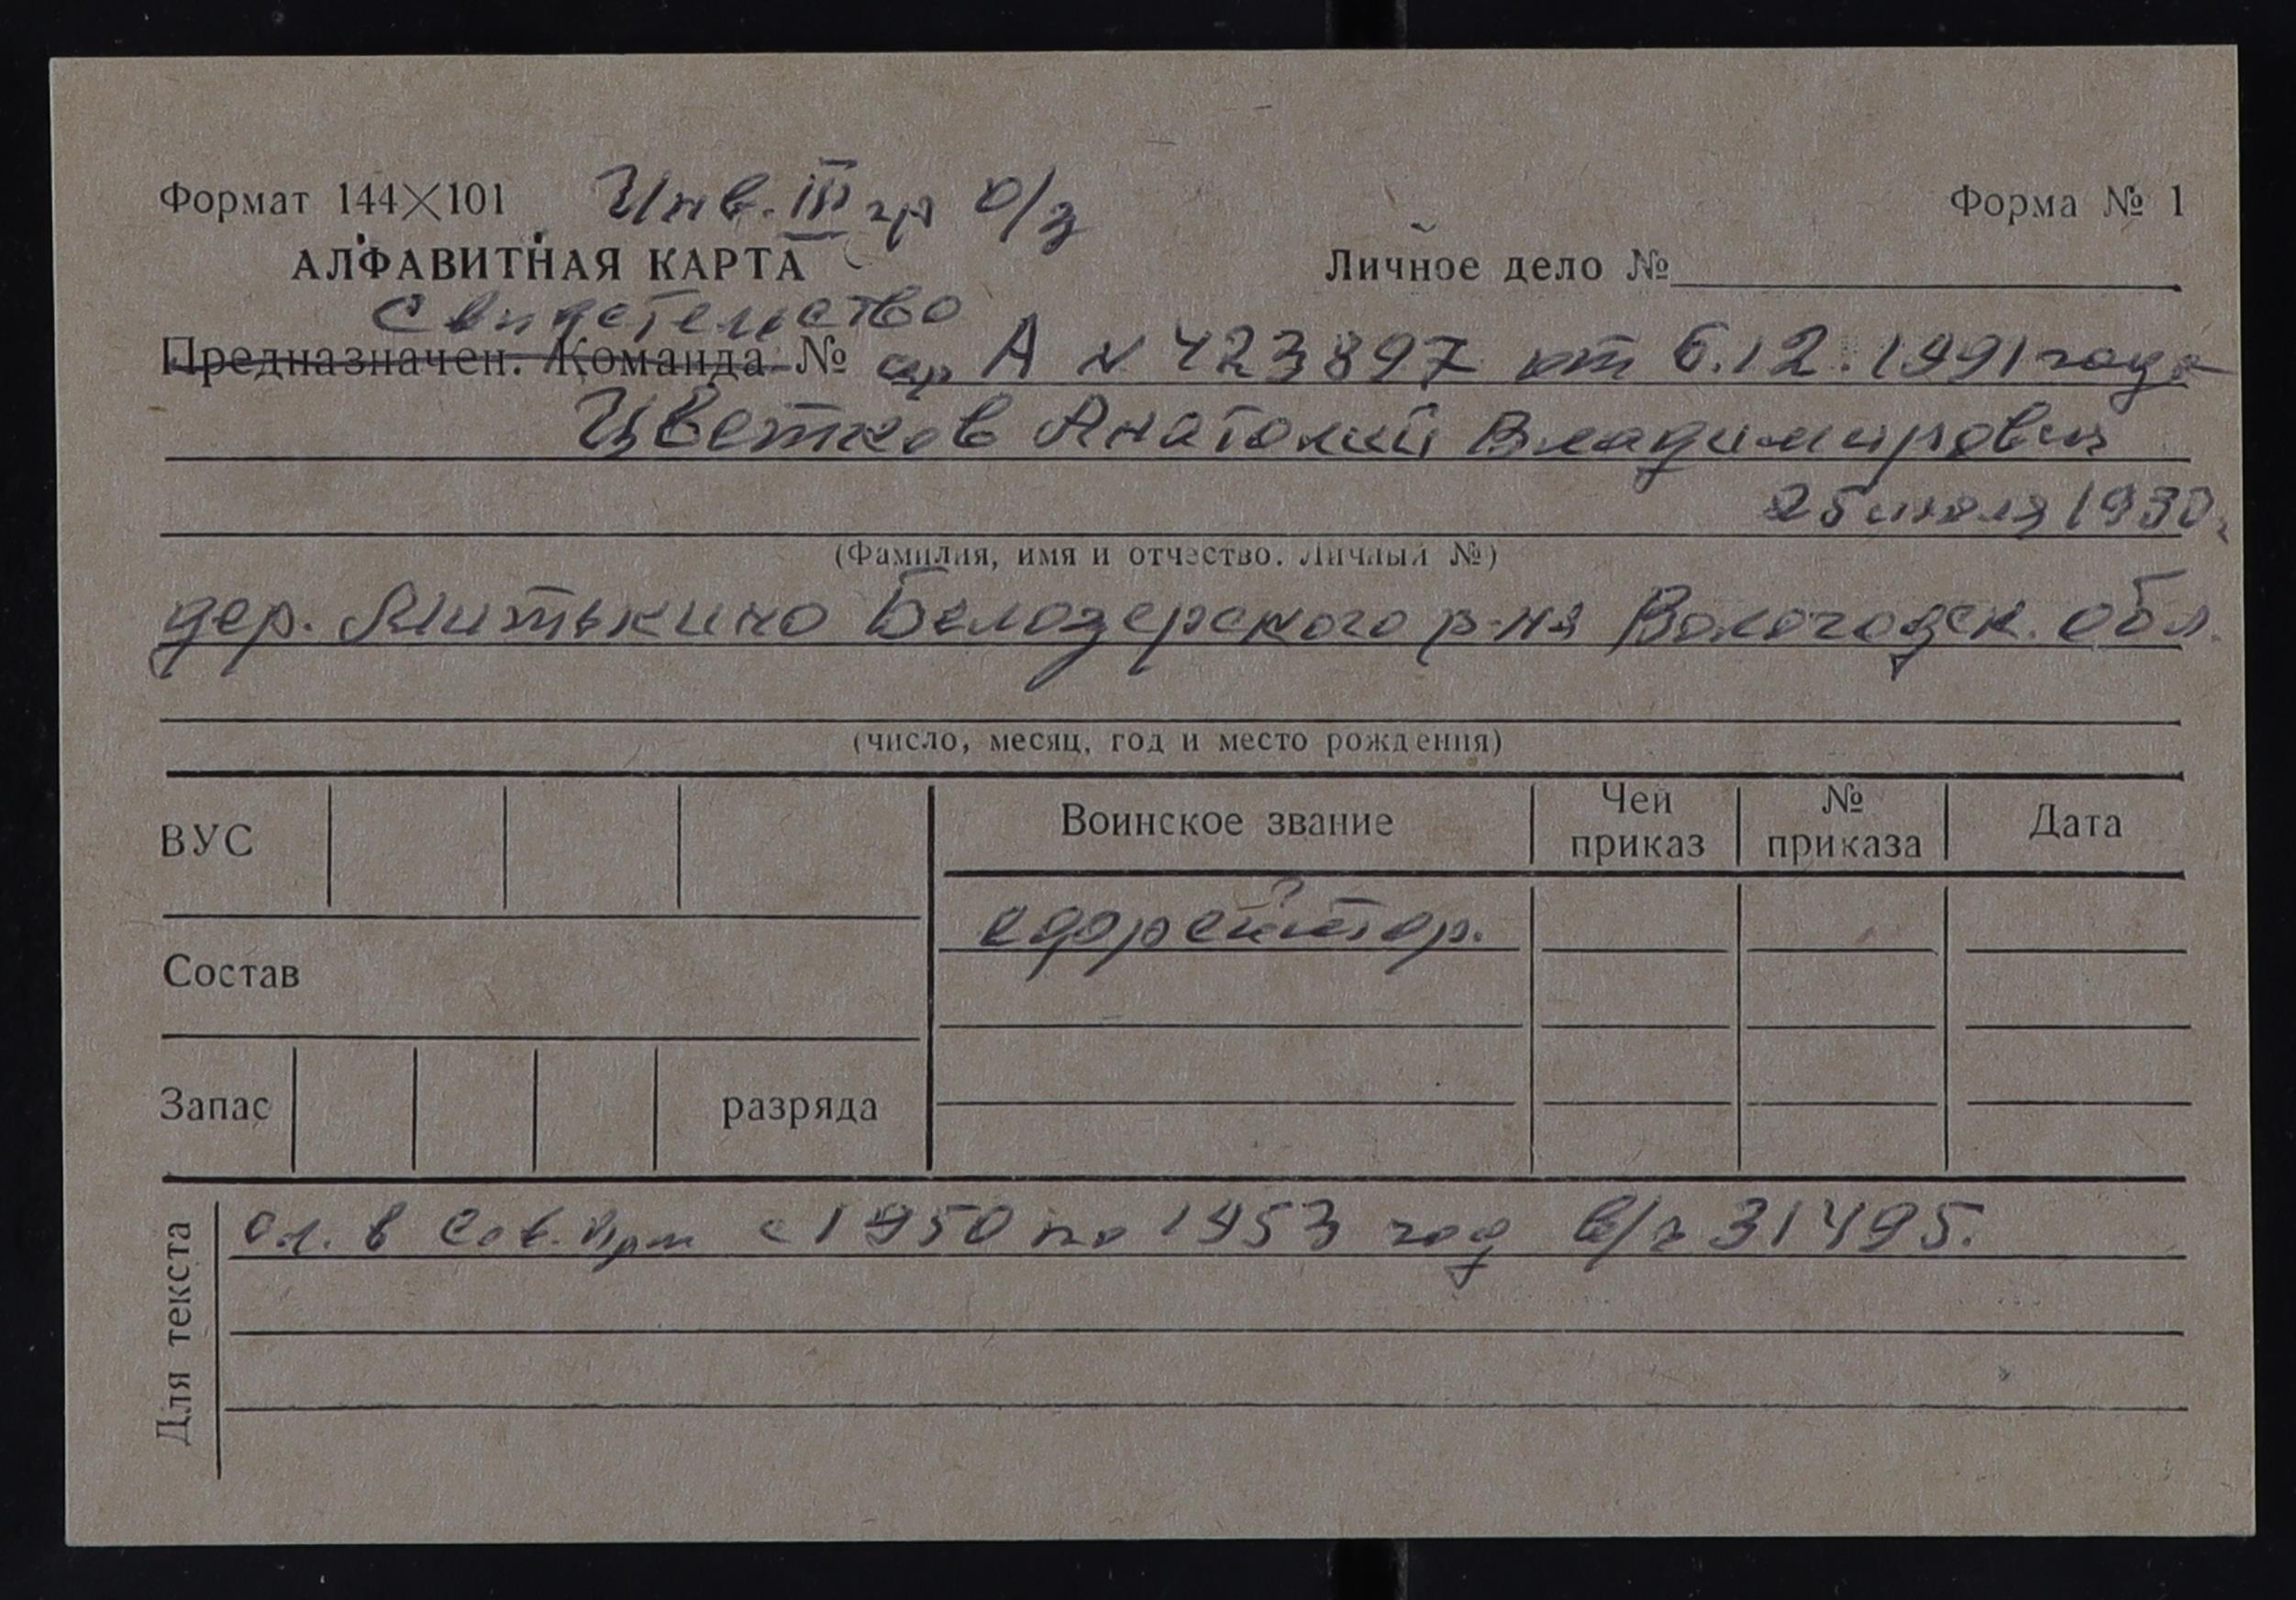 Формат 144×101 Инв. III гр о/з Форма № 1
АЛФАВИТНАЯ КАРТА Личное дело №
Свидетельство
Предназначен. Команда № сер А № 423897 от 6.12.1991 года
Цветков Анатолий Владимирович
25 июля 1930.
(Фамилия, имя и отчество. Личный №)
дер. Митькино Белозерского р-на Вологодск. обл.
(число, месяц, год и место рождения)
ВУС Воинское звание Чей приказ № приказа Дата
ефрейтор.
Состав
Запас разряда
Для текста
Сл. в Сов. Арм с 1950 по 1953 год в/ч 31495.